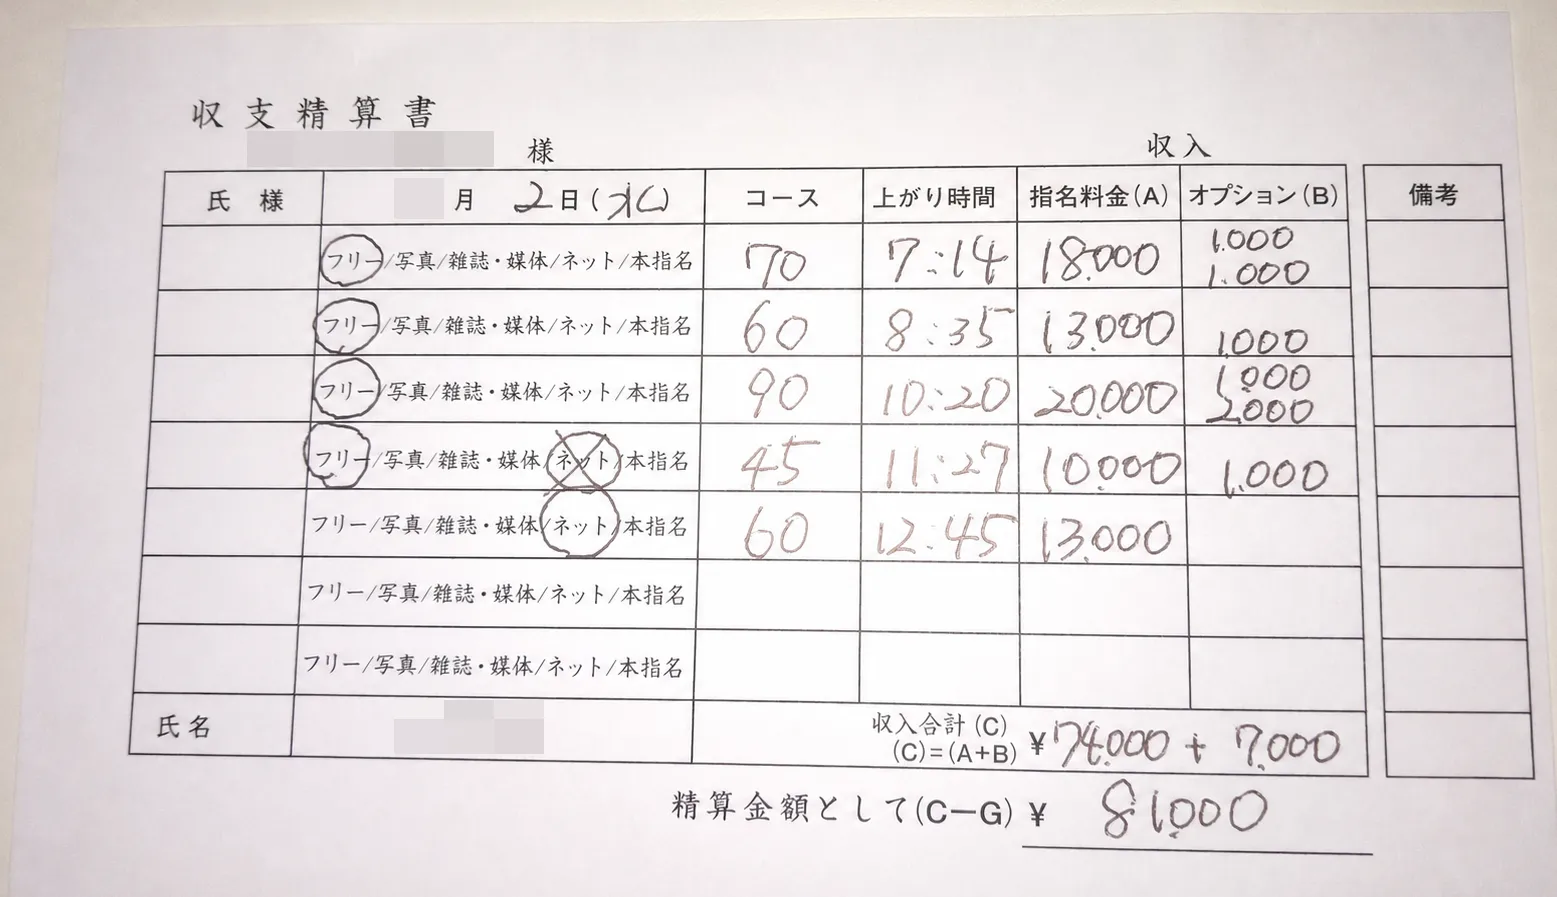 収支精算書
様
収入
氏 様 月 2日(水) コース 上がり時間 指名料金(A) オプション(B) 備考
フリー/写真/雑誌・媒体/ネット/本指名 70 7:14 18.000 1.000
1.000
フリー/写真/雑誌・媒体/ネット/本指名 60 8:35 13.000 1.000
フリー/写真/雑誌・媒体/ネット/本指名 90 10:20 20.000 1.000
2.000
フリー/写真/雑誌・媒体/ネット/本指名 45 11:27 10.000 1.000
フリー/写真/雑誌・媒体/ネット/本指名 60 12:45 13.000
フリー/写真/雑誌・媒体/ネット/本指名
フリー/写真/雑誌・媒体/ネット/本指名
氏名 収入合計(C)
(C)=(A+B) ¥74.000 + 7.000
精算金額として(C-G) ¥ 81.000